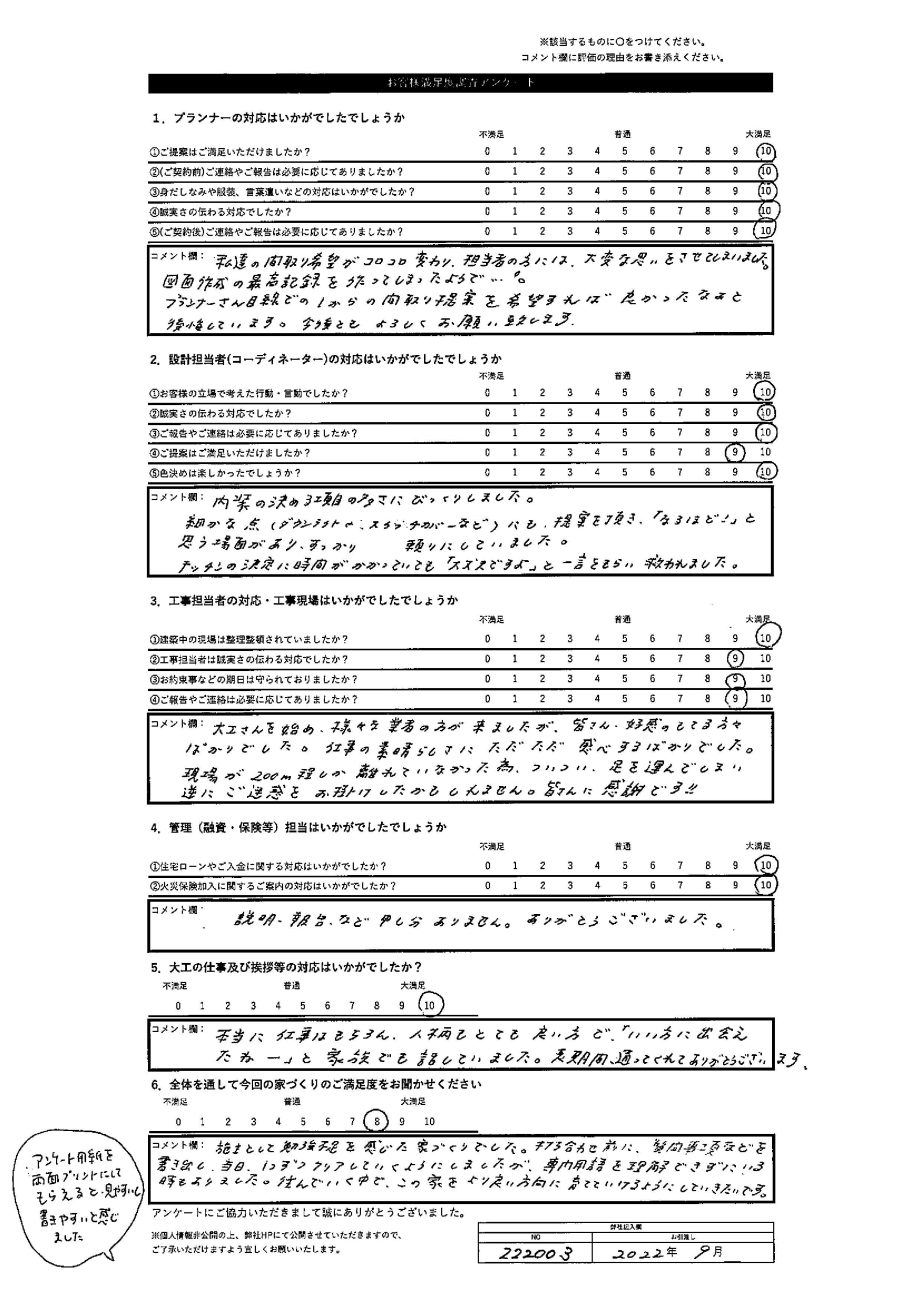 ※該当するものに〇をつけてください。
コメント欄に評価の理由をお書き添えください。
お客様満足度調査アンケート
1．プランナーの対応はいかがでしたでしょうか
不満足 普通 大満足
①ご提案はご満足いただけましたか？ 0 1 2 3 4 5 6 7 8 9 10
②(ご契約前)ご連絡やご報告は必要に応じてありましたか？ 0 1 2 3 4 5 6 7 8 9 10
③身だしなみや服装、言葉遣いなどの対応はいかがでしたか？ 0 1 2 3 4 5 6 7 8 9 10
④誠実さの伝わる対応でしたか？ 0 1 2 3 4 5 6 7 8 9 10
⑤(ご契約後)ご連絡やご報告は必要に応じてありましたか？ 0 1 2 3 4 5 6 7 8 9 10
コメント欄： 私達の間取り希望がコロコロ変わり、担当者の方には、大変な思いをさせてしまいました。
図面作成の最高記録を作ってしまったようで…。
プランナーさん目線での1からの間取り提案を希望すれば良かったなぁと
後悔しています。今後とも よろしくお願い致します。
2．設計担当者(コーディネーター)の対応はいかがでしたでしょうか
不満足 普通 大満足
①お客様の立場で考えた行動・言動でしたか？ 0 1 2 3 4 5 6 7 8 9 10
②誠実さの伝わる対応でしたか？ 0 1 2 3 4 5 6 7 8 9 10
③ご報告やご連絡は必要に応じてありましたか？ 0 1 2 3 4 5 6 7 8 9 10
④ご提案はご満足いただけましたか？ 0 1 2 3 4 5 6 7 8 9 10
⑤色決めは楽しかったでしょうか？ 0 1 2 3 4 5 6 7 8 9 10
コメント欄： 内装の決める項目の多さにびっくりしました。
細かな点(ダウンライトや、スイッチカバーなど)にも、提案を頂き、「なるほど！」と
思う場面があり、すっかり 頼りにしていました。
キッチンの決定に時間がかかっていても「大丈夫ですよ」と一言をもらい 救われました。
3．工事担当者の対応・工事現場はいかがでしたでしょうか
不満足 普通 大満足
①建築中の現場は整理整頓されていましたか？ 0 1 2 3 4 5 6 7 8 9 10
②工事担当者は誠実さの伝わる対応でしたか？ 0 1 2 3 4 5 6 7 8 9 10
③お約束事などの期日は守られておりましたか？ 0 1 2 3 4 5 6 7 8 9 10
④ご報告やご連絡は必要に応じてありましたか？ 0 1 2 3 4 5 6 7 8 9 10
コメント欄： 大工さんを始め、様々な業者の方が来ましたが、皆さん、好感のもてる方々
ばかりでした。仕事の素晴らしさに ただただ 感心するばかりでした。
現場が200m程しか離れていなかった為、ついつい、足を運んでしまい
逆にご迷惑をお掛けしたかもしれません。皆さんに感謝です!!
4．管理（融資・保険等）担当はいかがでしたでしょうか
不満足 普通 大満足
①住宅ローンやご入金に関する対応はいかがでしたか？ 0 1 2 3 4 5 6 7 8 9 10
②火災保険加入に関するご案内の対応はいかがでしたか？ 0 1 2 3 4 5 6 7 8 9 10
コメント欄： 説明、報告、など申し分ありません。ありがとうございました。
5．大工の仕事及び挨拶等の対応はいかがでしたか？
不満足 普通 大満足
0 1 2 3 4 5 6 7 8 9 10
コメント欄： 本当に仕事はもちろん、人柄もとても良い方で、「いい方に出会え
たねー」と家族でも話していました。長期間、通ってくれてありがとうございます。
6．全体を通して今回の家づくりのご満足度をお聞かせください
不満足 普通 大満足
0 1 2 3 4 5 6 7 8 9 10
コメント欄： 施主として勉強不足を感じた家づくりでした。打ち合わせ前に、質問事項などを
書き出し、当日、1つずつクリアしていくようにしましたが、専門用語を理解できずにいる
時もありました。住んでいく中で、この家をより良い方向に育てていけるようにしていきたいです。
アンケート用紙を
両面プリントにして
もらえると、見やすいし
書きやすいと感じ
ました
アンケートにご協力いただきまして誠にありがとうございました。
※個人情報非公開の上、弊社HPにて公開させていただきますので、
ご了承いただけますよう宜しくお願いいたします。
弊社記入欄
NO お引渡し
222003 2022年 9月